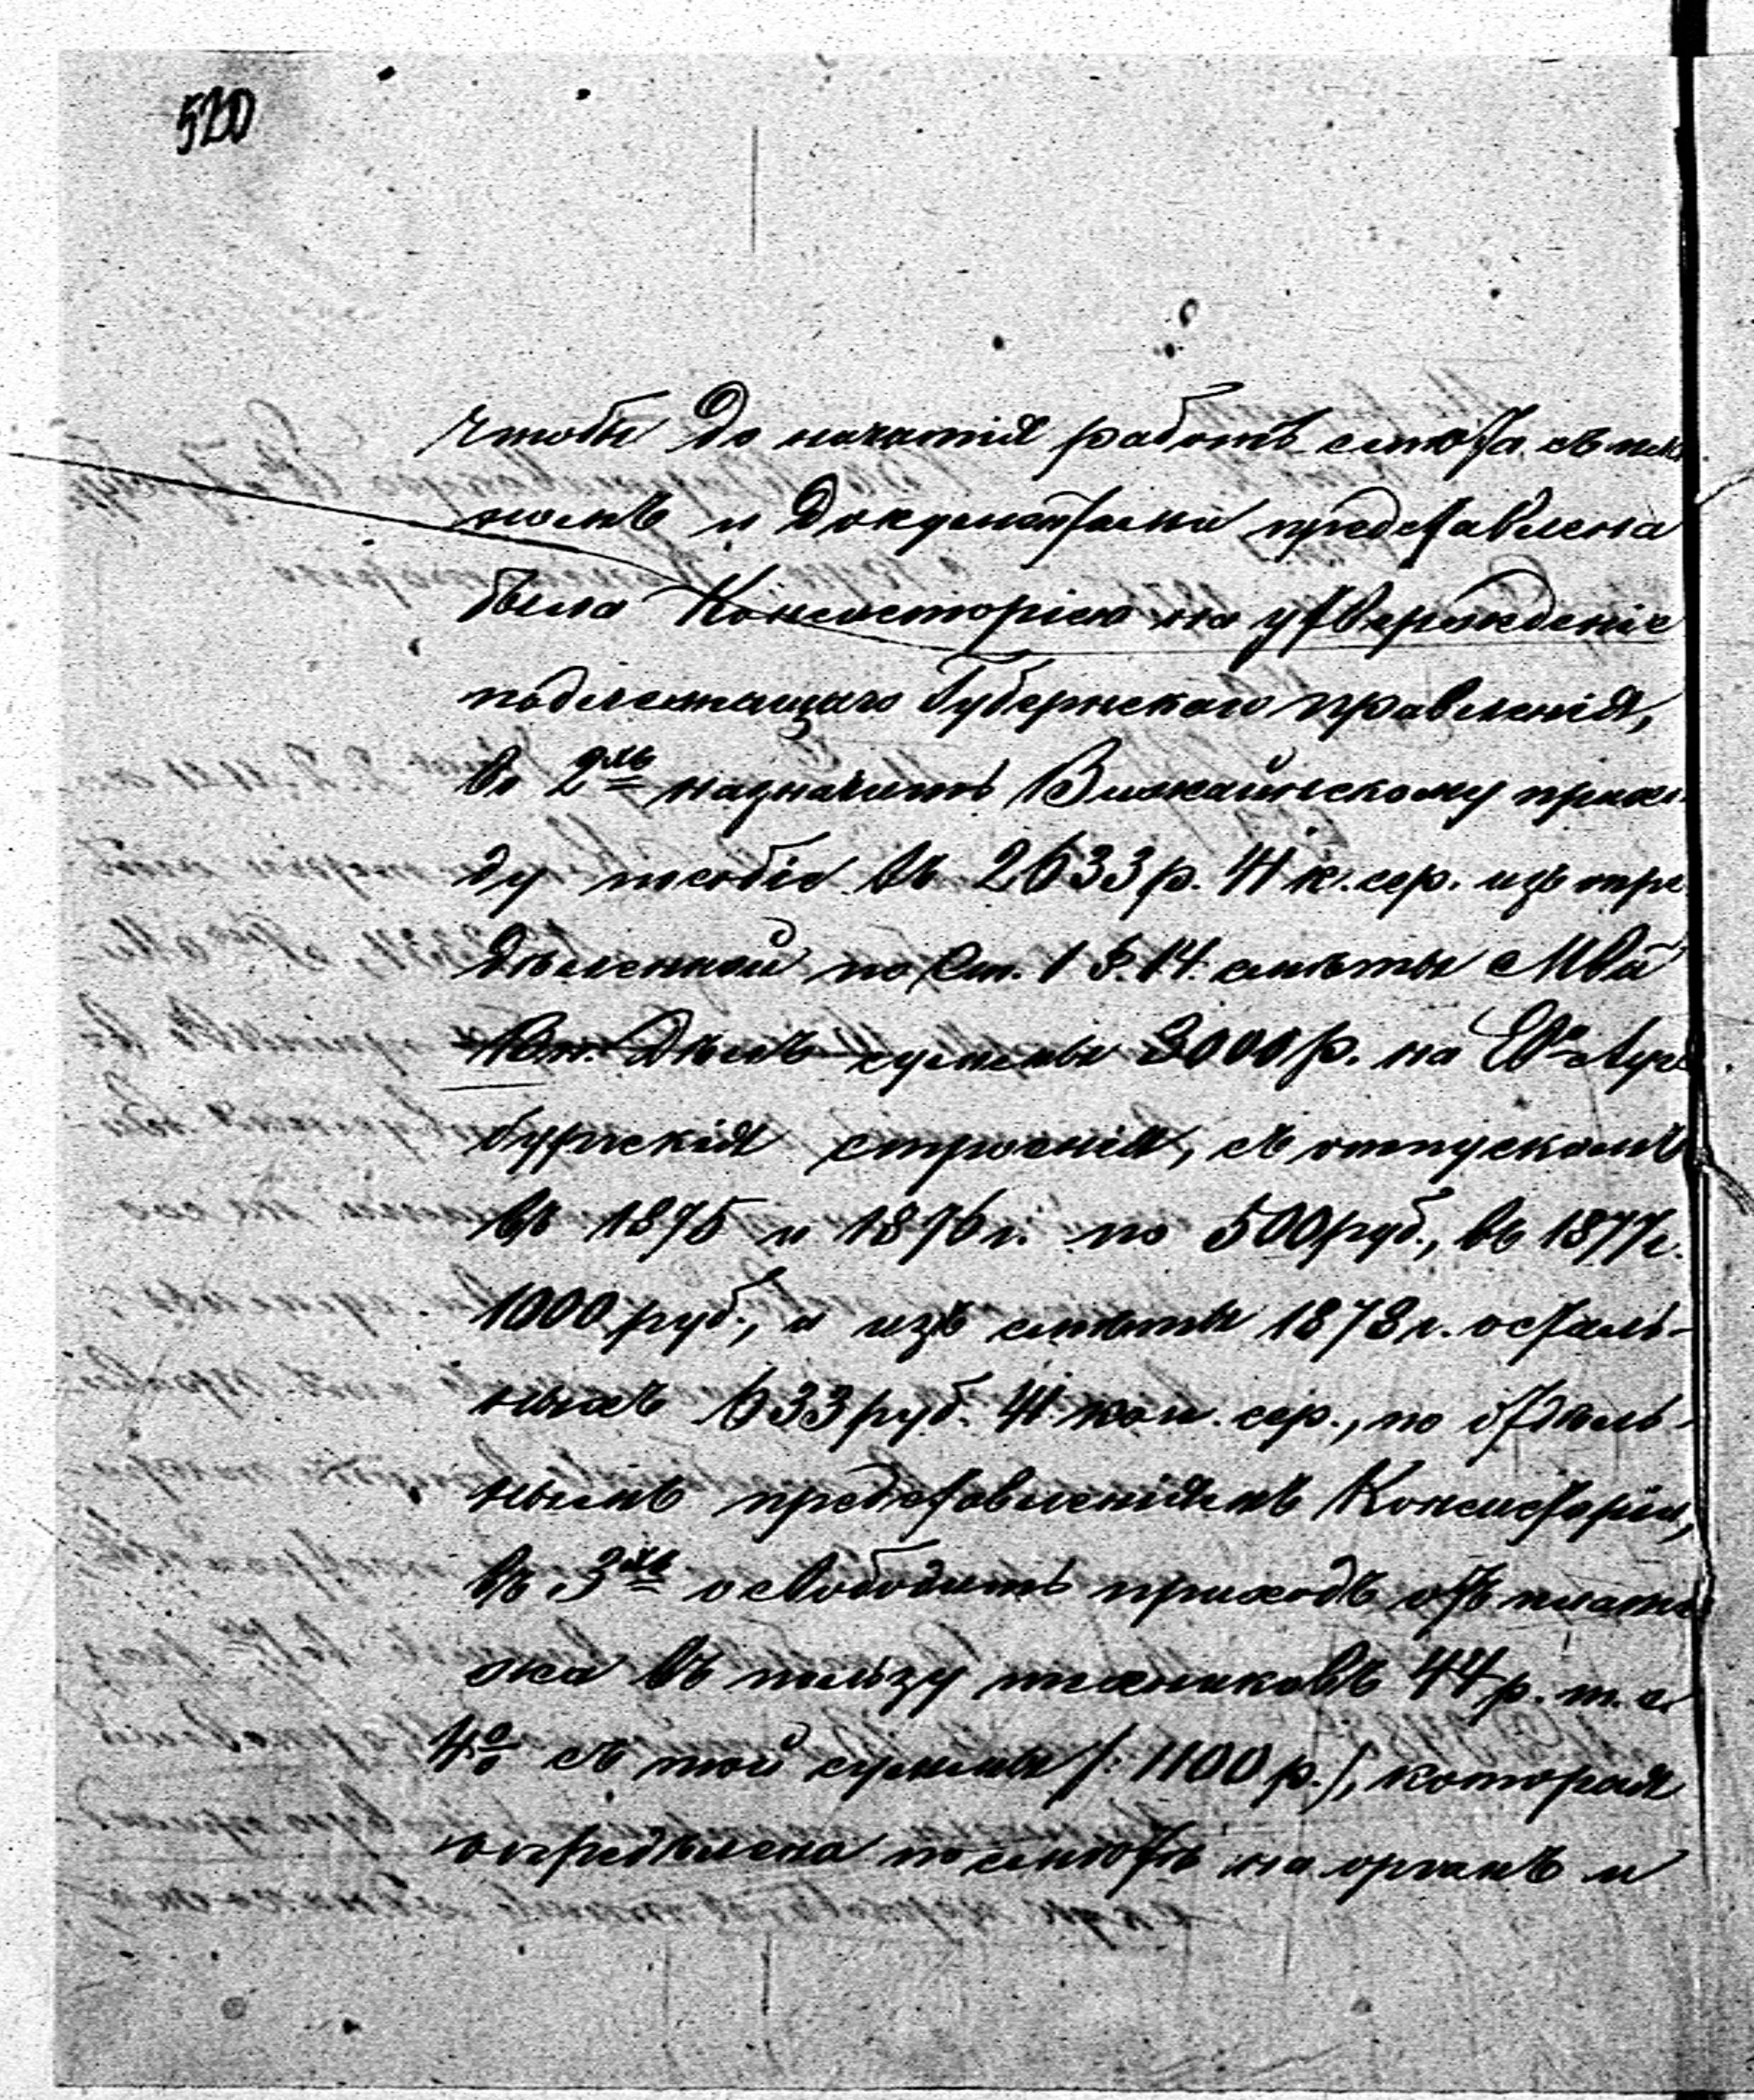 520
чтобы до начатія работъ смѣта съ пла-
номъ и документами представлена
была Консисторіею на утвержденіе
подлежащаго Губернскаго правленія,
во 2хъ назначить Вижайнскому прихо-
ду пособіе въ 2633 р. 41 к. сер. изъ опре-
дѣленной по ст. 1 §. 14. смѣты Мва
Вн. Дѣлъ суммы 3000 р. на Ев. Аугс-
бургскія строенія, съ отпускомъ
въ 1875 и 1876 г. по 500 руб., въ 1877 г.
1000 руб., и изъ смѣты 1878 г. осталь-
ныхъ 633 руб. 41 коп. сер., по отдѣль-
нымъ представленіямъ Консисторіи,
въ 3хъ освободить приходъ отъ плате-
жа въ пользу техниковъ 44 р. т. е.
4% съ той суммы /: 1100 р. /, которая
опредѣлена по смѣтѣ на органъ и